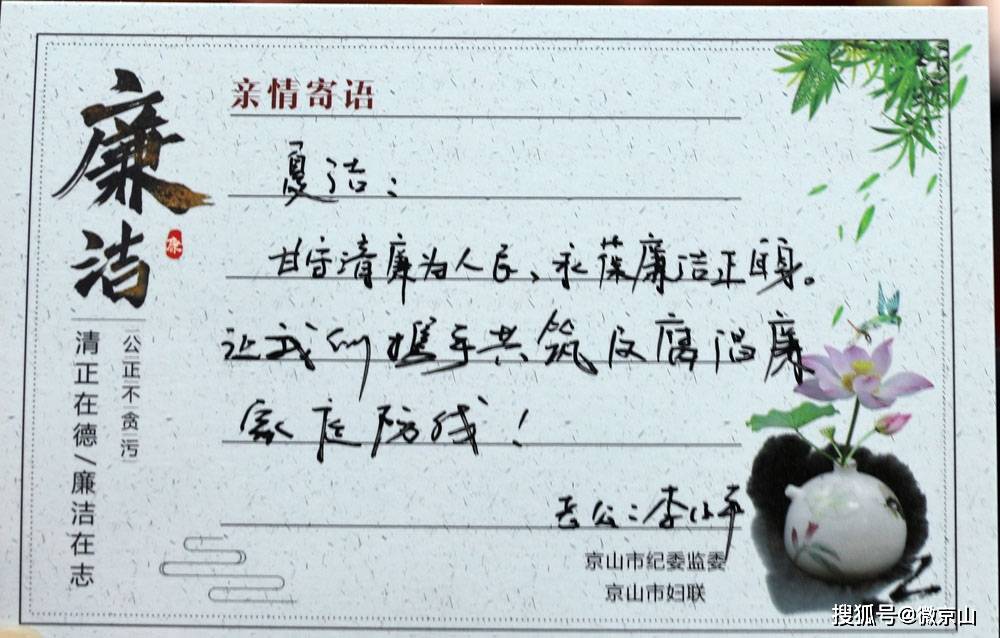 廉洁
廉
公正不贪污
清正在德/廉洁在志
亲情寄语
夏洁：
甘守清廉为人民、永葆廉洁正自身。
让我们携手共筑反腐倡廉
家庭防线！
老公：李 平
京山市纪委监委
京山市妇联
搜狐号@微京山